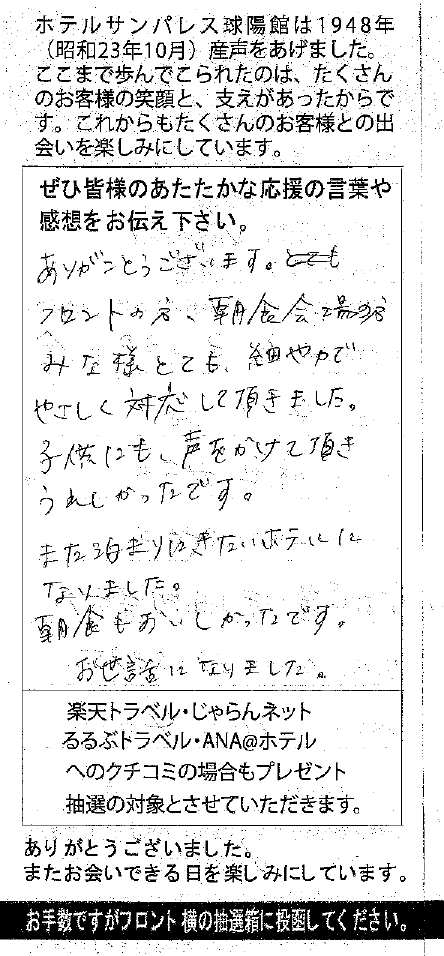 ホテルサンパレス球陽館は1948年
（昭和23年10月）産声をあげました。
ここまで歩んでこられたのは、たくさん
のお客様の笑顔と、支えがあったからで
す。これからもたくさんのお客様との出
会いを楽しみにしています。
ぜひ皆様のあたたかな応援の言葉や
感想をお伝え下さい。
ありがとうございます。とても
フロントの方、朝食会場の方
みな様とても、細やかで
やさしく対応して頂きました。
子供にも、声をかけて頂き
うれしかったです。
また泊まりにきたいホテルに
なりました。
朝食もおいしかったです。
お世話になりました。
楽天トラベル・じゃらんネット
るるぶトラベル・ANA@ホテル
へのクチコミの場合もプレゼント
抽選の対象とさせていただきます。
ありがとうございました。
またお会いできる日を楽しみにしています。
お手数ですがフロント横の抽選箱に投函してください。